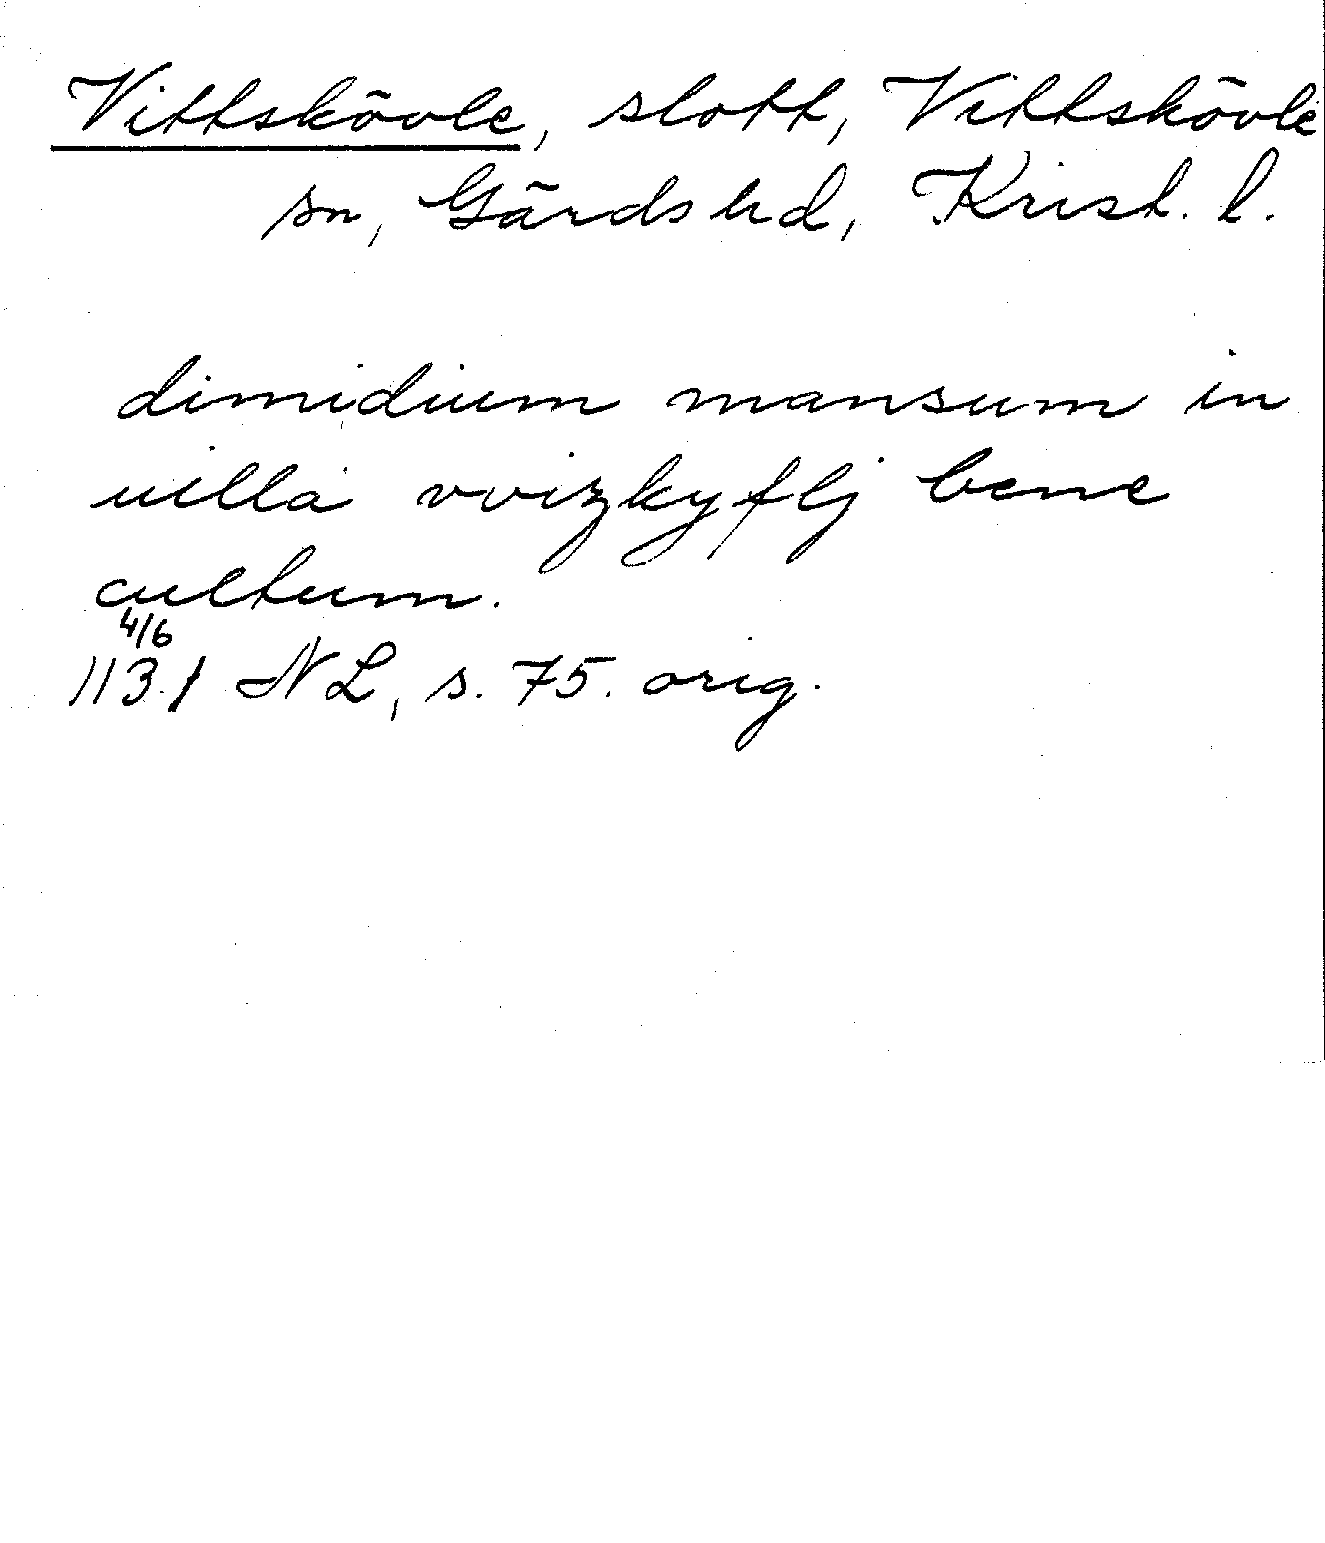 Vittskövle, slott, Vittskövle
sn, Gärds hd, Krist. l.
dimidium mansum in
uilla vvizkyflj bene
cultum.
4/6
1131 NL, s. 75. orig.